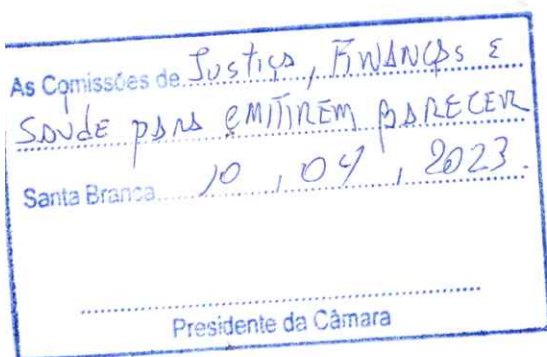 As Comissões de Justiça, Finanças e
Saúde para emitirem parecer
Santa Branca 10, 04, 2023.
Presidente da Câmara